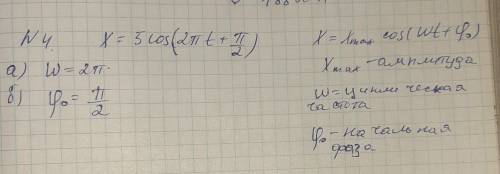 N 4. X = 5 cos(2πt + π/2)
а) W = 2π.
б) φ₀ = π/2
X = Xmax cos(Wt + φ₀)
Xmax - амплитуда
W = циклическая
частота
φ₀ - начальная
фаза